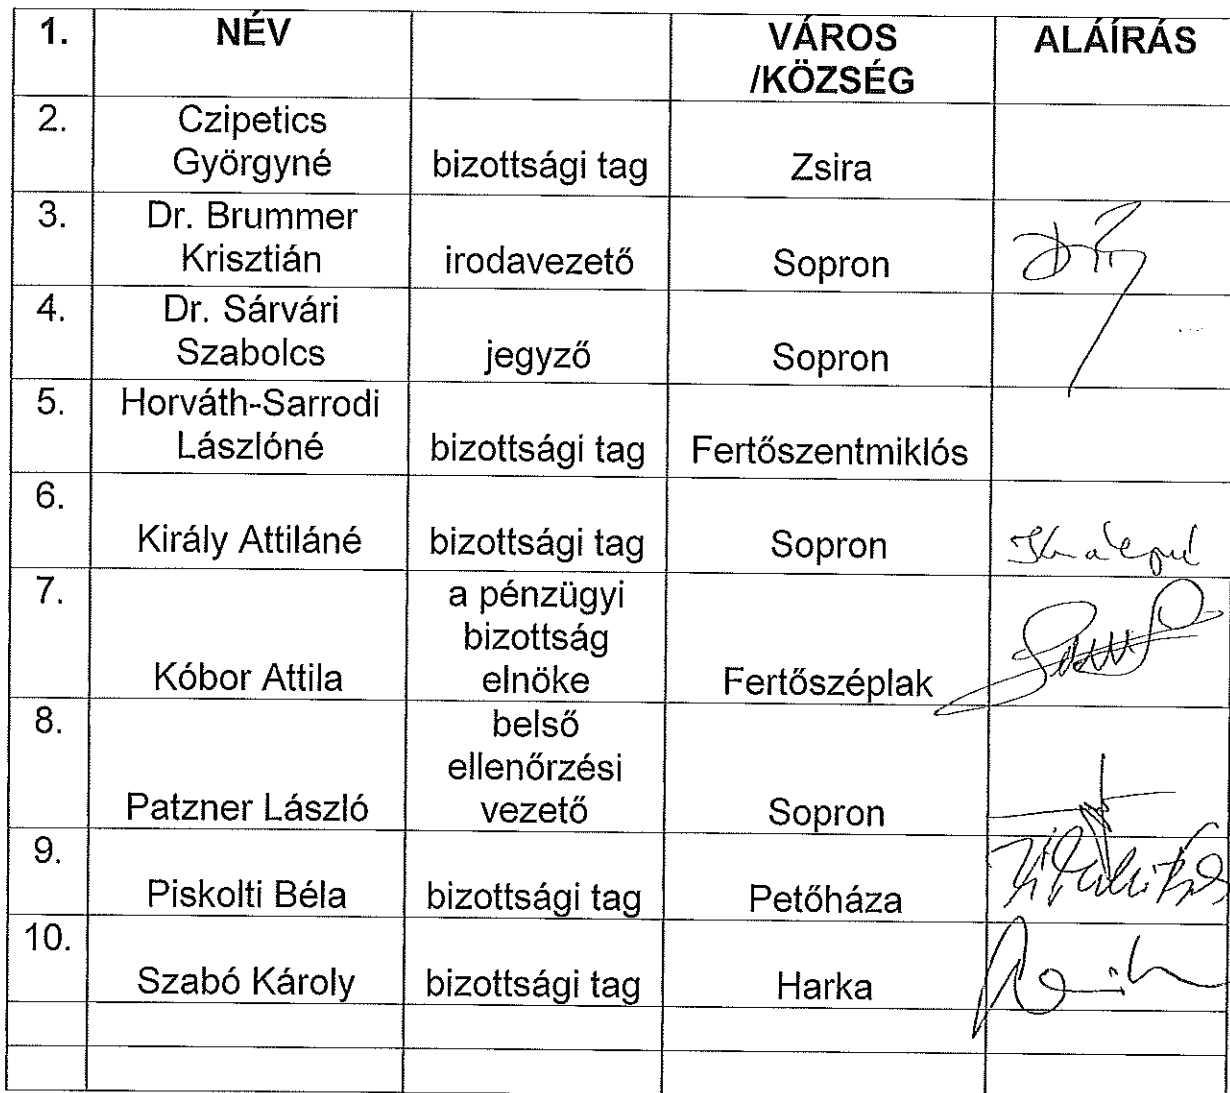 1. NÉV VÁROS ALÁÍRÁS
/KÖZSÉG
2. Czipetics
Györgyné bizottsági tag Zsira
3. Dr. Brummer
Krisztián irodavezető Sopron
4. Dr. Sárvári
Szabolcs jegyző Sopron
5. Horváth-Sarrodi
Lászlóné bizottsági tag Fertőszentmiklós
6.
Király Attiláné bizottsági tag Sopron
7. a pénzügyi
bizottság
Kóbor Attila elnöke Fertőszéplak
8. belső
ellenőrzési
Patzner László vezető Sopron
9.
Piskolti Béla bizottsági tag Petőháza
10.
Szabó Károly bizottsági tag Harka